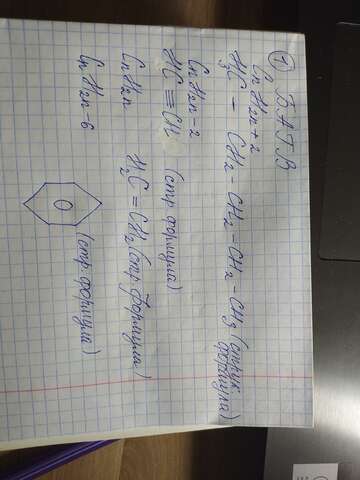 ① БАГВ
CnH2n+2
H3C - CH2 - CH2 - CH2 - CH3 (струк
формула)
CnH2n-2
HC ≡ CH (стр формула)
CnH2n H2C = CH2 (стр формула)
CnH2n-6
(стр. формула)